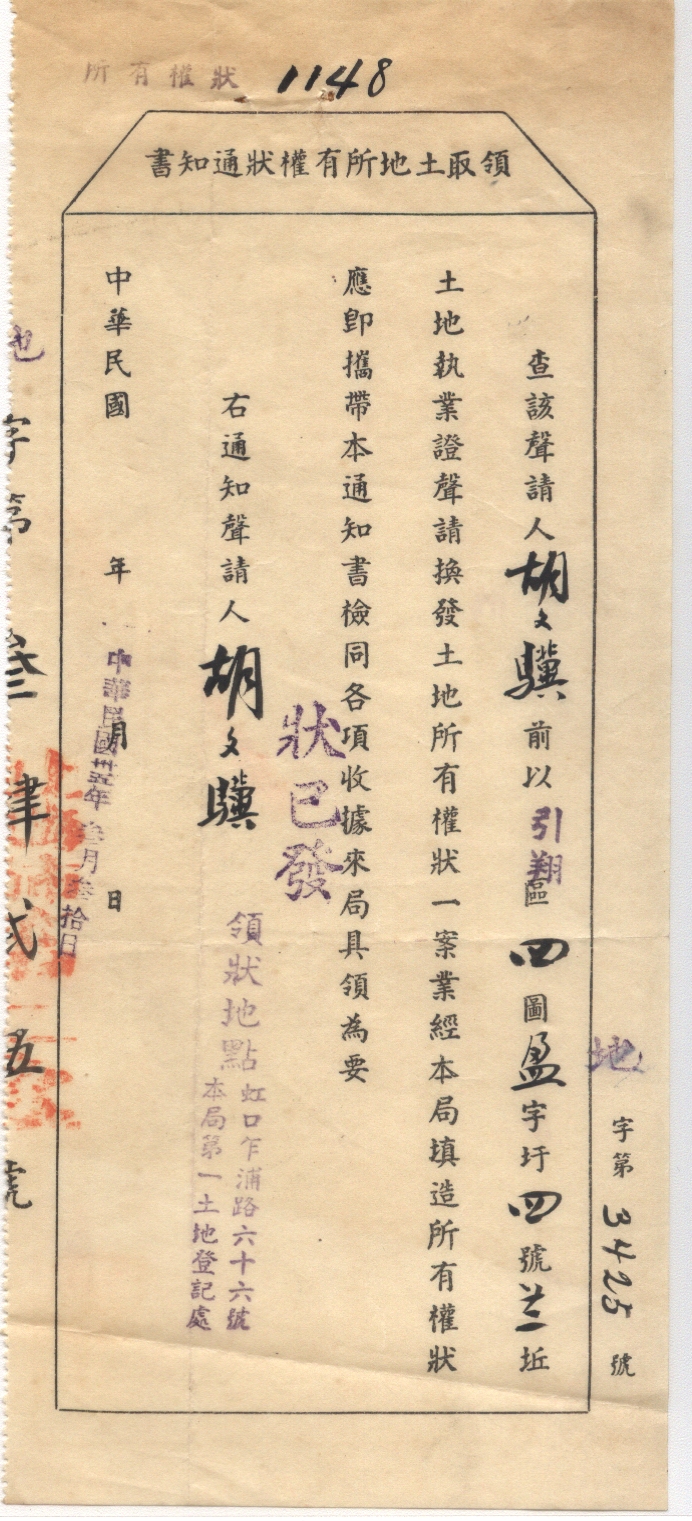 所有權狀 1148
領取土地所有權狀通知書
地字第3425號
查該聲請人胡文驥前以引翔區四圖盈字圩四號坵
土地執業證聲請換發土地所有權狀一案業經本局填造所有權狀
應卽攜帶本通知書檢同各項收據來局具領為要
狀已發
右通知聲請人胡文驥
領狀地點
虹口乍浦路六十六號
本局第一土地登記處
中華民國 年 月 日
中華民國卅五年叁月叁拾日
地字第叁肆弍五號